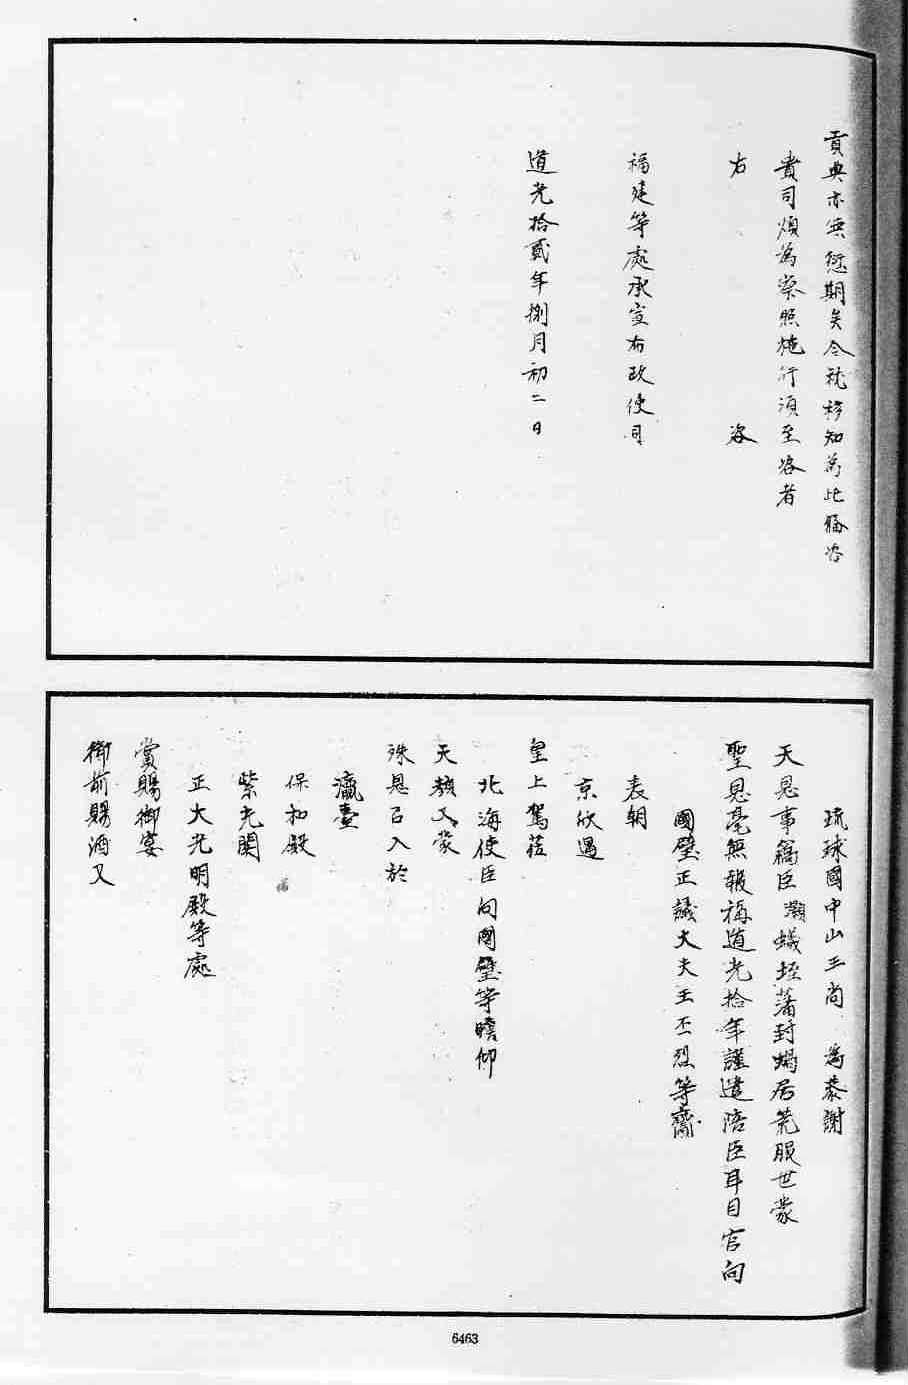 貢典亦無愆期矣今就移知為此備咨
貴司煩為察照施行須至咨者
右咨
福建等處承宣布政使司
道光拾貳年捌月初二日
琉球國中山王尚 為恭謝
天恩事竊臣灝蟻垤藩封蝸居荒服世蒙
聖恩毫無報稱道光拾年謹遣陪臣耳目官向
國璧正議大夫王丕烈等齎
表朝
京欣遇
皇上駕莅
北海使臣向國璧等瞻仰
天顏又蒙
殊恩召入於
瀛臺
保和殿
紫光閣
正大光明殿等處
賞賜御宴
御前賜酒又
6463